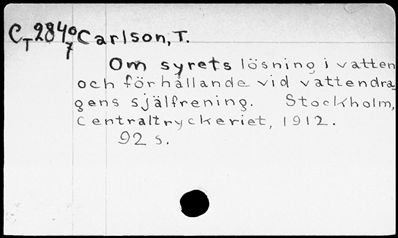 CT 2840 7 Carlson, T.
Om syrets lösning i vatten
och förhållande vid vattendra-
gens själfrening. Stockholm,
Centraltryckeriet, 1912.
92 s.